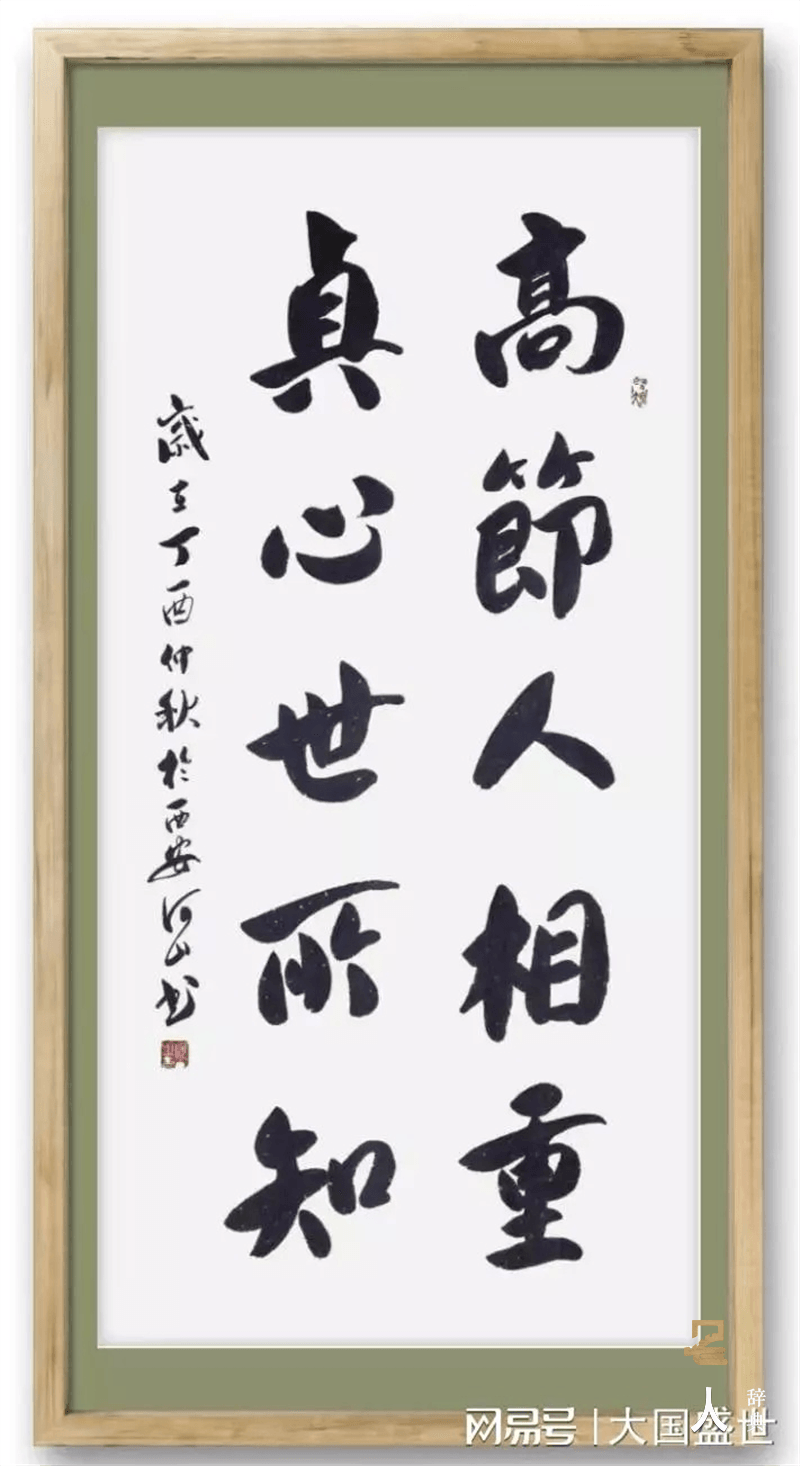 高節人相重
真心世所知
歲在丁酉仲秋於西安河山书
人
辞典
网易号 | 大国盛世